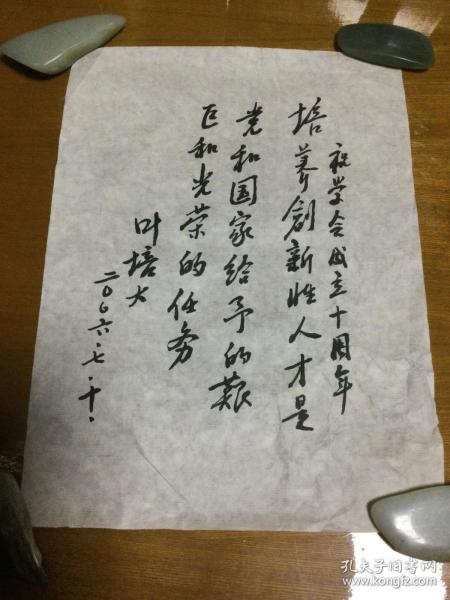 祝学会成立十周年
培养创新性人才是
党和国家给予的艰
巨和光荣的任务
叶培大
二〇〇六.七.十.
孔夫子旧书网
www.kongfz.com